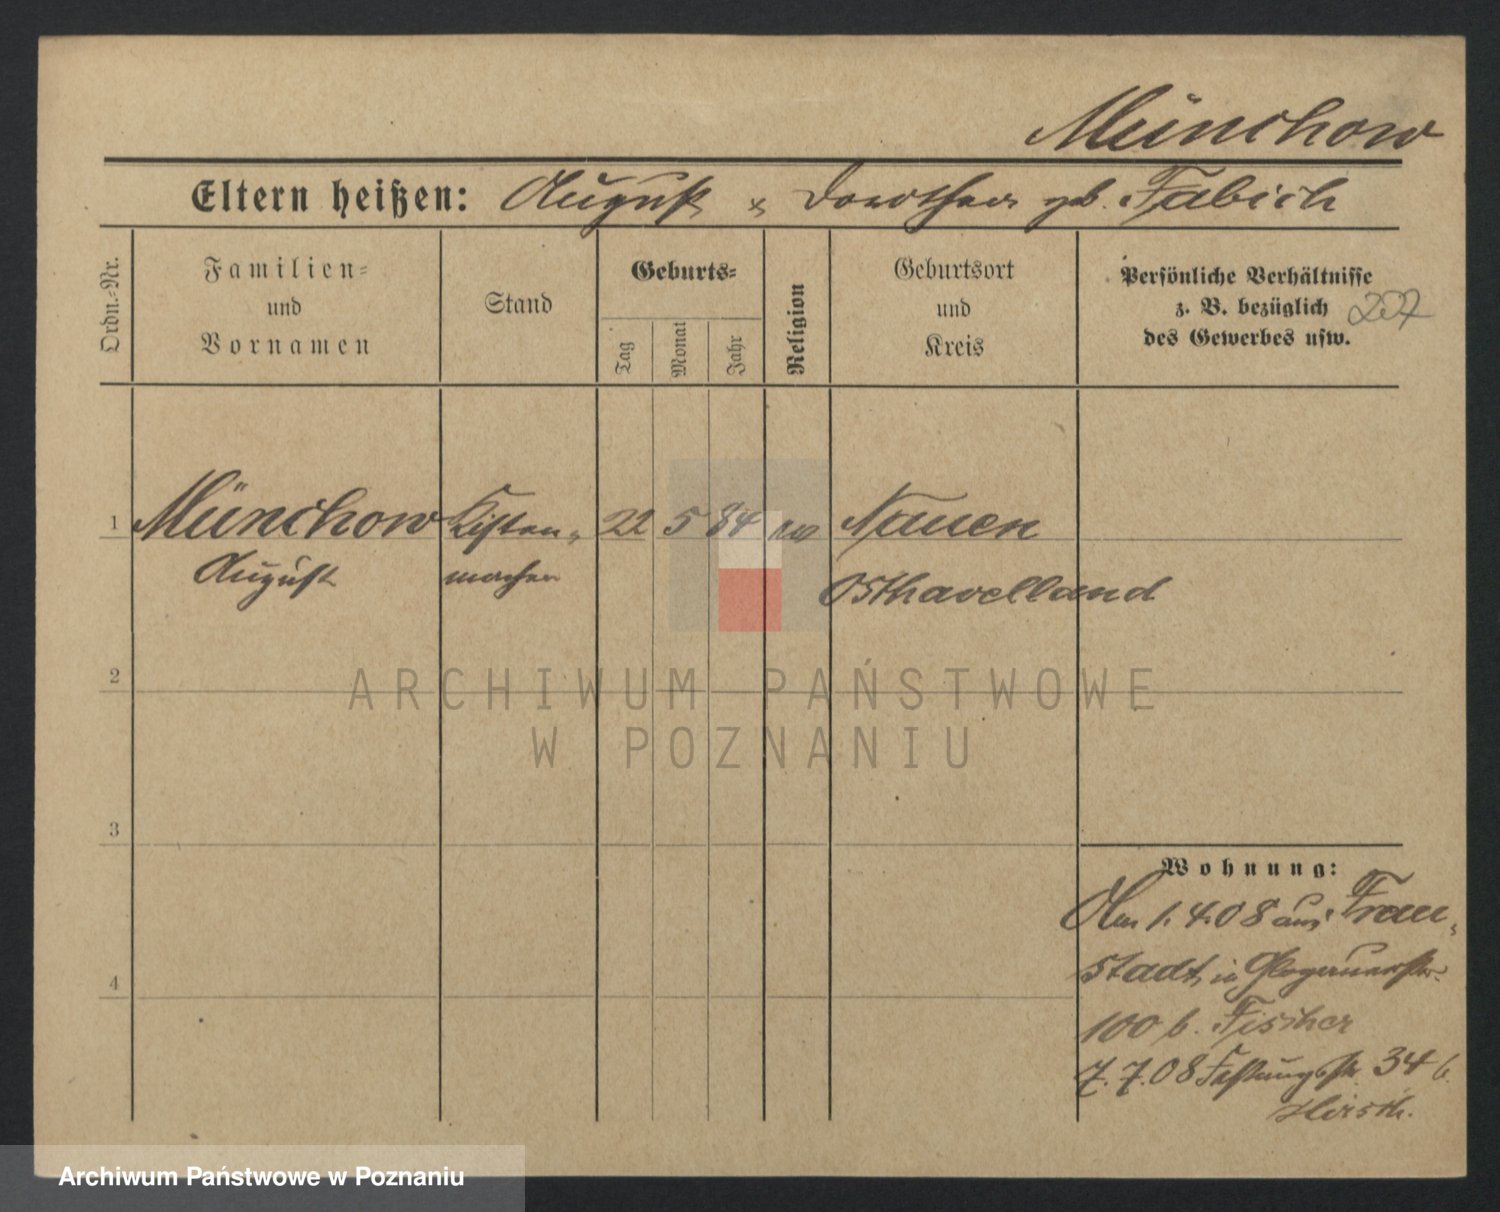 Münchow
Eltern heißen: August & Dorothea geb. Fabich
Ordn.-Nr.
Familien-
und
Vornamen
Stand
Geburts-
Tag
Monat
Jahr
Religion
Geburtsort
und
Kreis
Persönliche Verhältnisse
z. B. bezüglich
des Gewerbes usw.
207
1 Münchow Kisten- 22 5 84 Nauen
August macher Osthavelland
2
ARCHIWUM PAŃSTWOWE
W POZNANIU
3
Wohnung:
Am 1.4.08 aus Frau-
stadt in Glogauerstr.
4
100 b. Fischer
7.7.08 Festungsstr. 34 b.
Hirsch.
Archiwum Państwowe w Poznaniu